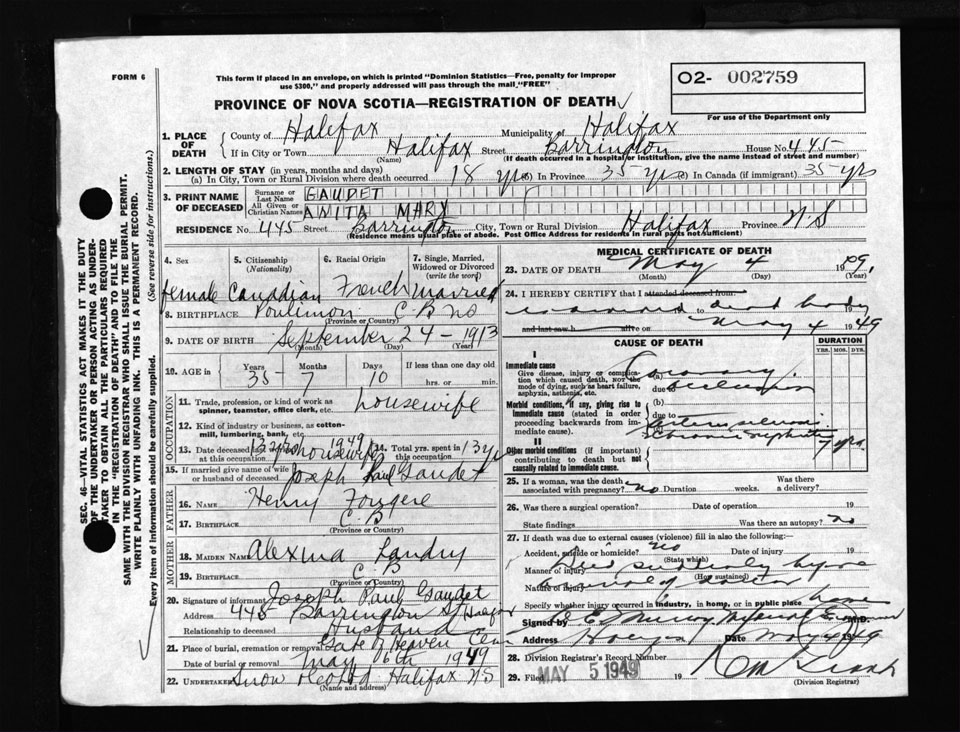 FORM 6
This form if placed in an envelope, on which is printed "Dominion Statistics—Free, penalty for improper
use $300," and properly addressed will pass through the mail "FREE"
O2- 002759
For use of the Department only
PROVINCE OF NOVA SCOTIA—REGISTRATION OF DEATH
1. PLACE OF DEATH County of Halifax Municipality of Halifax
If in City or Town Halifax Street Barrington House No. 445
(Name) (If death occurred in a hospital or institution, give the name instead of street and number)
2. LENGTH OF STAY (in years, months and days)
(a) In City, Town or Rural Division where death occurred 18 yrs (b) In Province 35 yrs (c) In Canada (if immigrant) 35 yrs
3. PRINT NAME OF DECEASED Surname or Last Name GAUDET
All Given or Christian Names ANITA MARY
RESIDENCE No. 445 Street Barrington City, Town or Rural Division Halifax Province N.S
(Residence means usual place of abode. Post Office Address for residents in rural parts not sufficient)
4. Sex 5. Citizenship (Nationality) 6. Racial Origin 7. Single, Married, Widowed or Divorced (write the word)
female Canadian French Married
8. BIRTHPLACE C.B NS
(Province or Country)
9. DATE OF BIRTH September 24 - 1913
(Month) (Day) (Year)
10. AGE in Years Months Days If less than one day old
35 - 7 10 hrs. or min.
OCCUPATION
11. Trade, profession, or kind of work as spinner, teamster, office clerk, etc. housewife
12. Kind of industry or business, as cotton-mill, lumbering, bank, etc.
13. Date deceased last worked at this occupation 1949 14. Total yrs. spent in this occupation 13 yrs
15. If married give name of wife or husband of deceased Joseph Paul Gaudet
FATHER
16. Name Henry Fougere
17. Birthplace C.B
(Province or Country)
MOTHER
18. Maiden Name Alexina Landry
19. Birthplace C.B
(Province or Country)
20. Signature of informant Joseph Paul Gaudet
Address 445 Barrington St Halifax
Relationship to deceased Husband
21. Place of burial, cremation or removal Gate of Heaven Cem
Date of burial or removal May 6th 1949
22. Undertaker Snow Halifax N.S
(Name and address)
MEDICAL CERTIFICATE OF DEATH
23. DATE OF DEATH May 4 1949
(Month) (Day) (Year)
24. I HEREBY CERTIFY that I attended deceased from
dead body
and last saw h alive on May 4 1949
CAUSE OF DEATH DURATION
YRS. MOS. DYS.
I
Immediate cause
Give disease, injury or complication which caused death, NOT the mode of dying, such as heart failure, asphyxia, asthenia, etc.
(a) Coronary
due to occlusion
Morbid conditions, if any, giving rise to immediate cause (stated in order proceeding backwards from immediate cause).
(b)
due to
II
Other morbid conditions (if important) contributing to death but not causally related to immediate cause.
Chronic nephritis yrs
25. If a woman, was the death associated with pregnancy? no Duration weeks. Was there a delivery?
26. Was there a surgical operation? Date of operation 19
State findings Was there an autopsy? no
27. If death was due to external causes (violence) fill in also the following:
Accident, suicide or homicide? no Date of injury 19
(State which)
Manner of injury Died suddenly before
(How sustained)
Nature of injury arrival of doctor
Specify whether injury occurred in industry, in home, or in public place home
Signed by Medical Examiner M.D.
Address Date May 4 1949
28. Division Registrar's Record Number
29. Filed MAY 5 1949 19
(Division Registrar)
SEC. 46—VITAL STATISTICS ACT MAKES IT THE DUTY
OF THE UNDERTAKER OR PERSON ACTING AS UNDERTAKER TO OBTAIN ALL THE PARTICULARS REQUIRED
IN THE "REGISTRATION OF DEATH" AND TO FILE THE
SAME WITH THE DIVISION REGISTRAR WHO SHALL ISSUE THE BURIAL PERMIT.
WRITE PLAINLY WITH UNFADING INK. THIS IS A PERMANENT RECORD.
Every item of information should be carefully supplied. (See reverse side for instructions.)